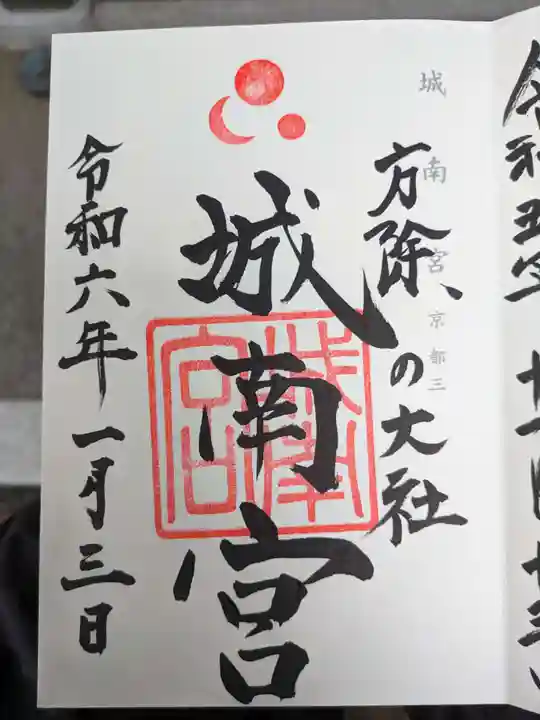 令和五年 十一月十三日
城南宮 京都三
方除の大社
城南宮
城南宮印
令和六年一月三日